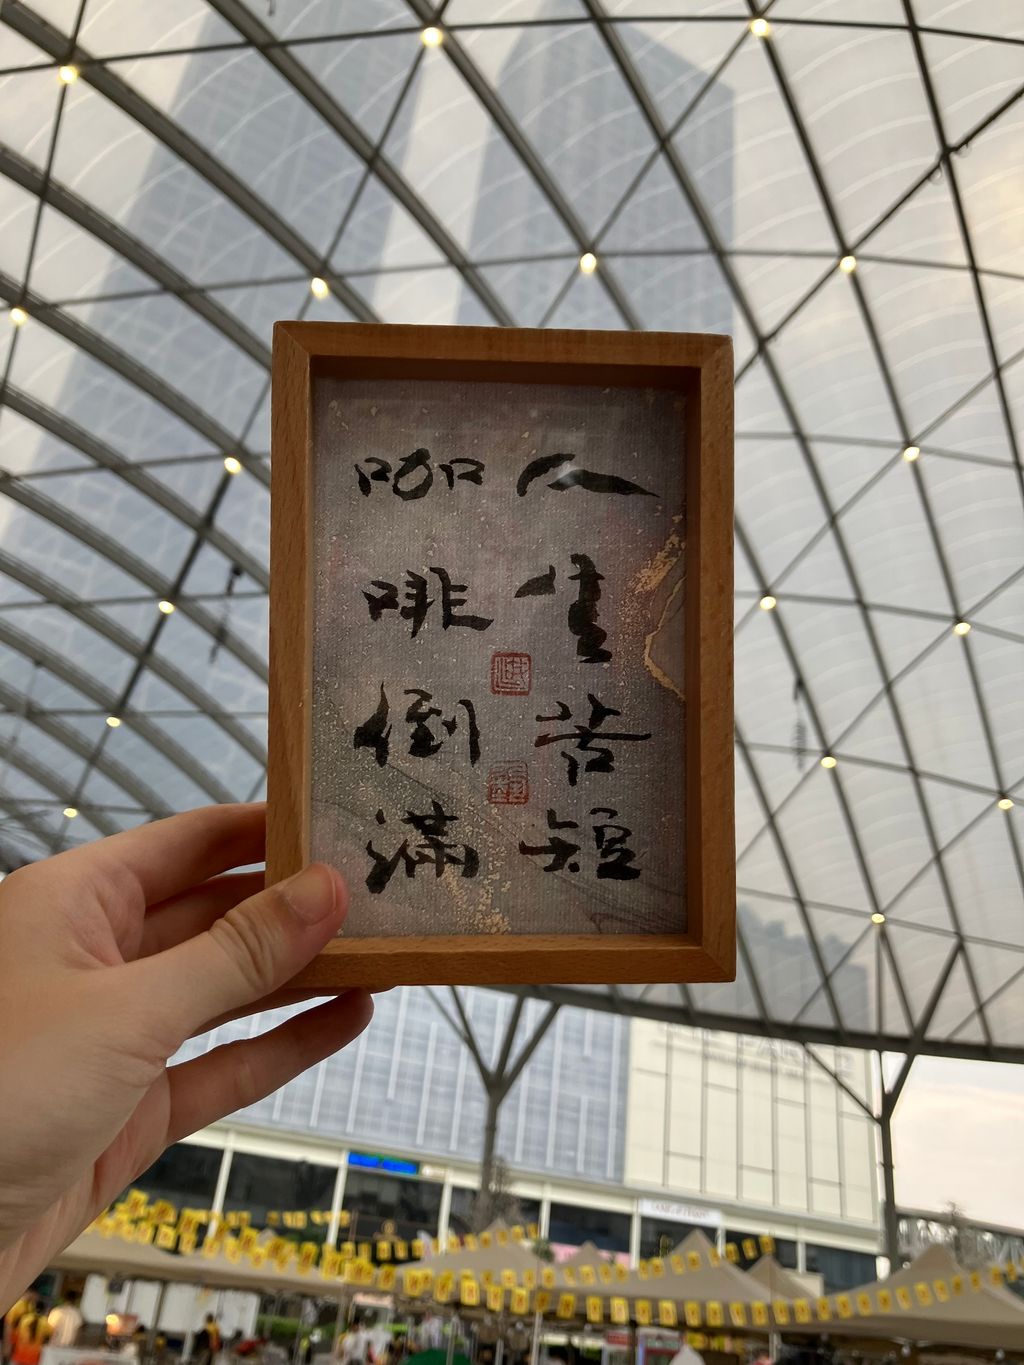 人生苦短
咖啡倒滿